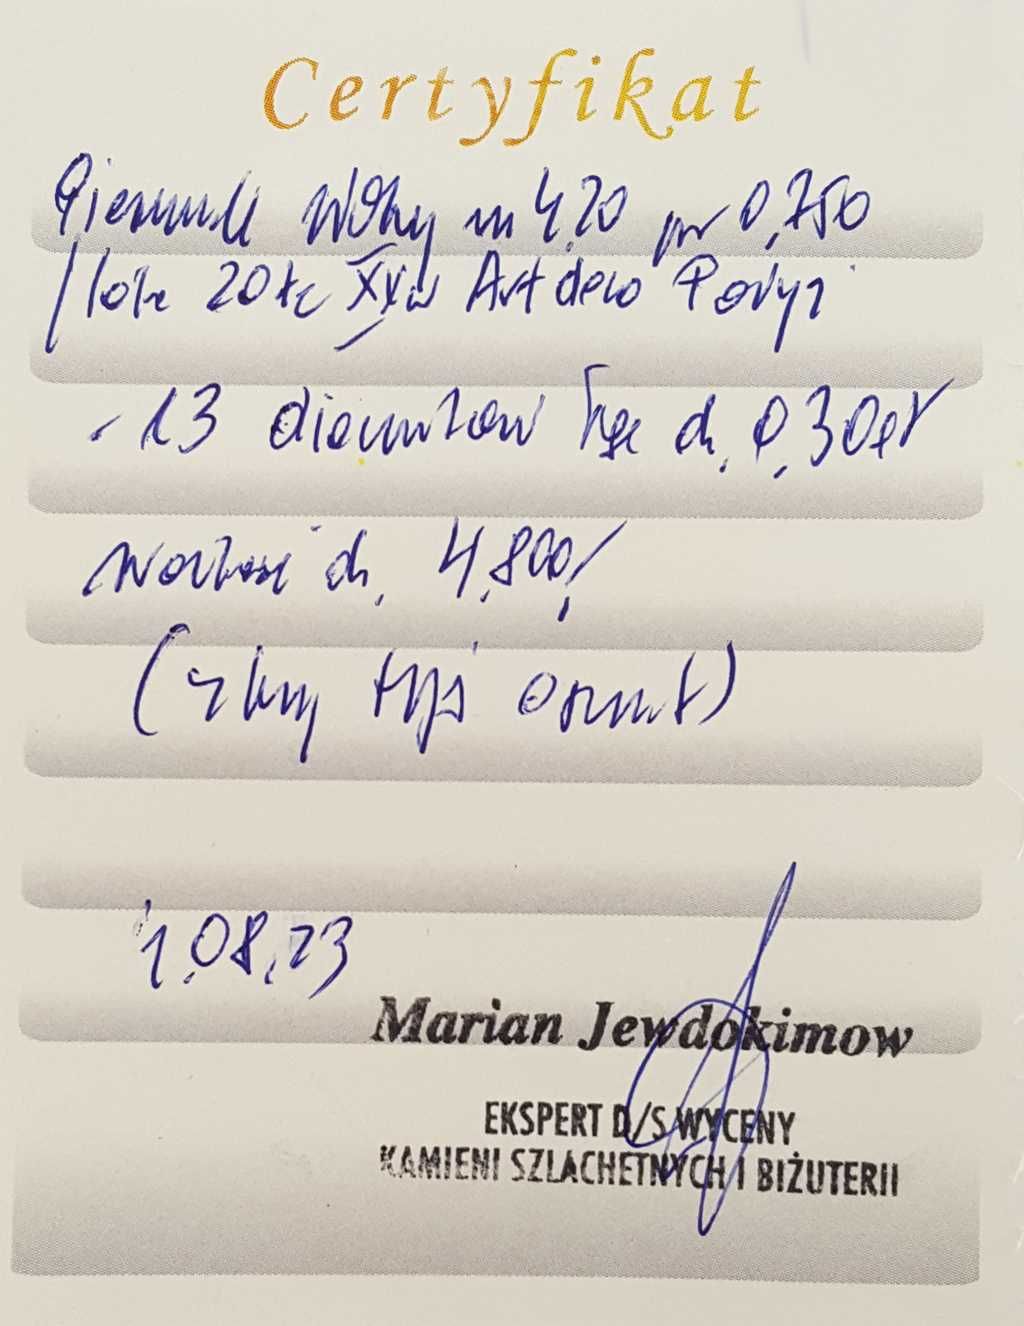 Certyfikat
Pierscionek złoty m 4,20 pr 0,750
lata 20te XXw Art deco Paryż
- 13 diamentów łącz ok. 0,30ct
wartość ok. 4.800,-
(cztery tyś osiemset)
1.08.23
Marian Jewdokimow
EKSPERT D/S WYCENY
KAMIENI SZLACHETNYCH I BIŻUTERII